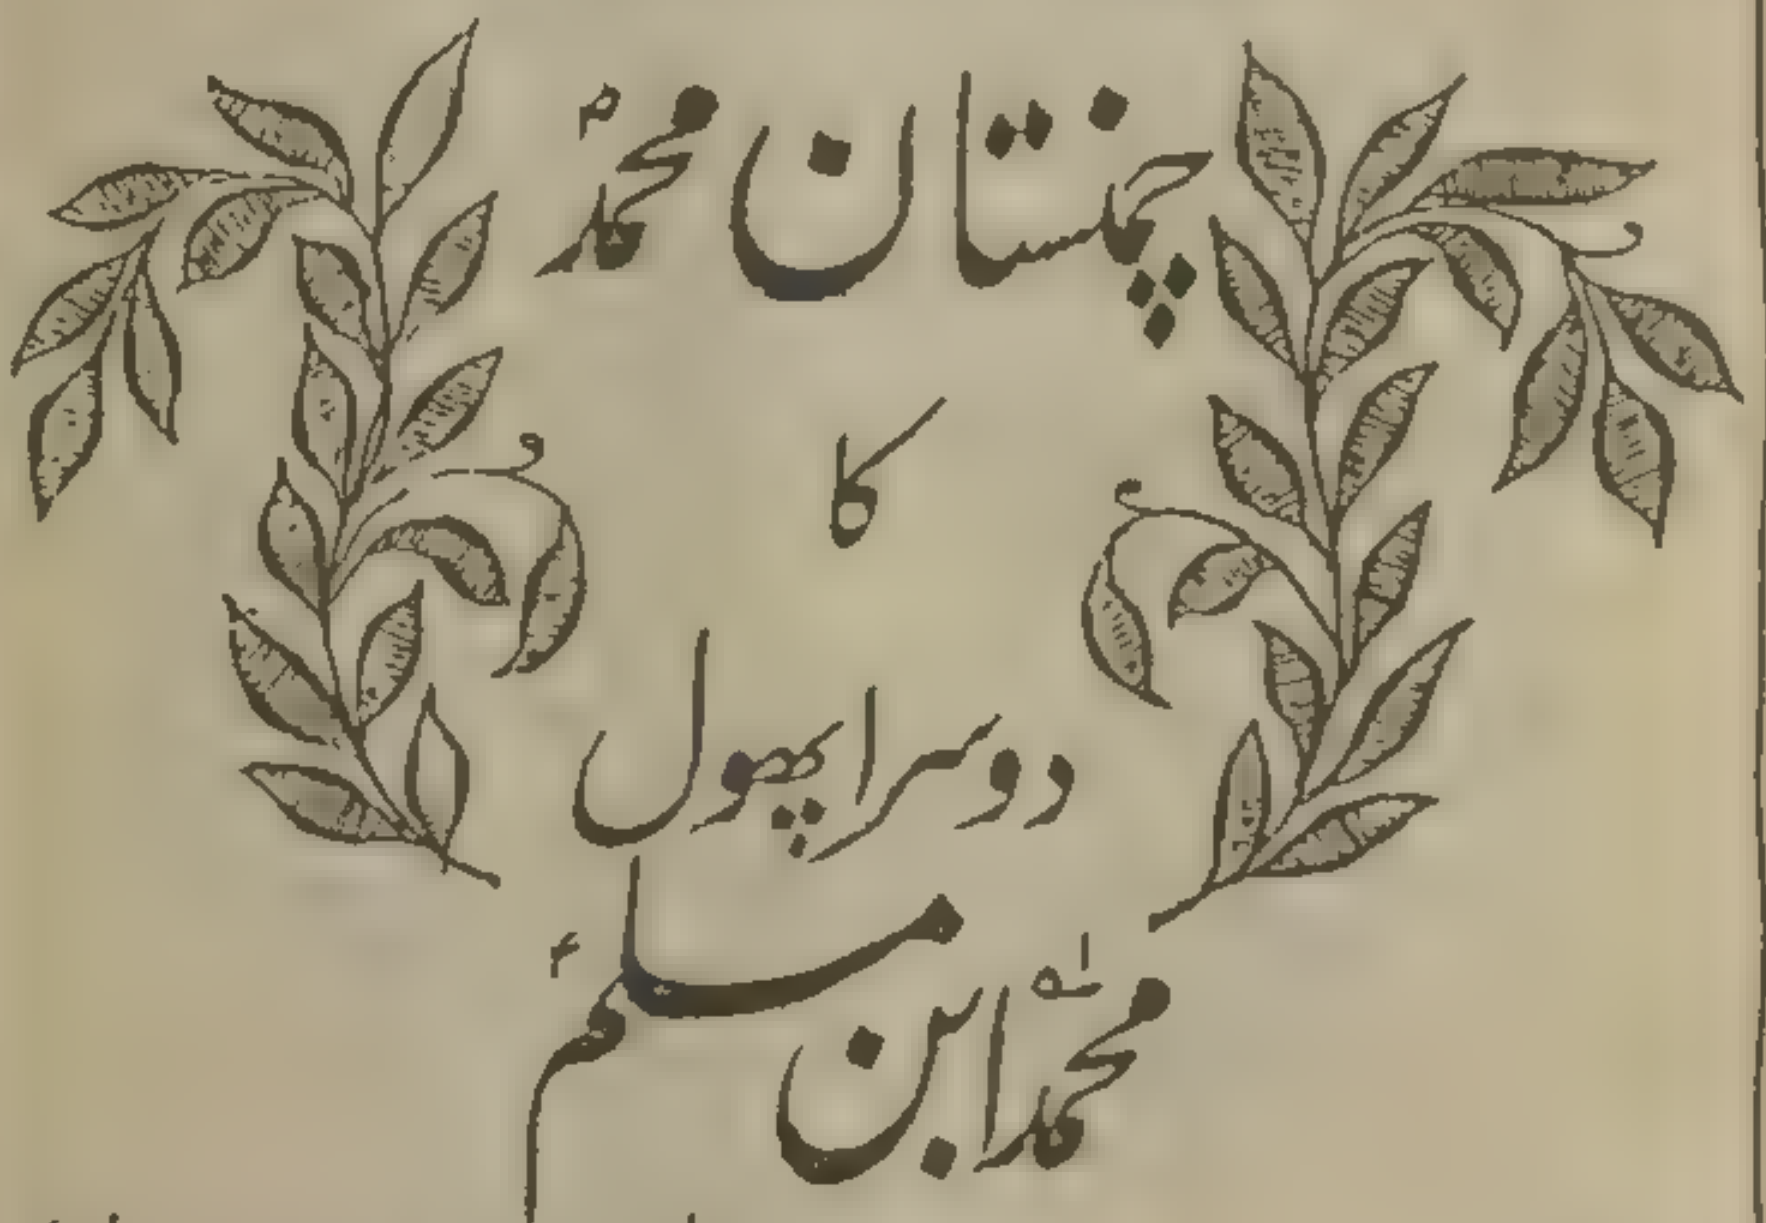 چمنستان محمدؐ
کا
دوسرا پھول
محمدؑ ابن مسلمؑ